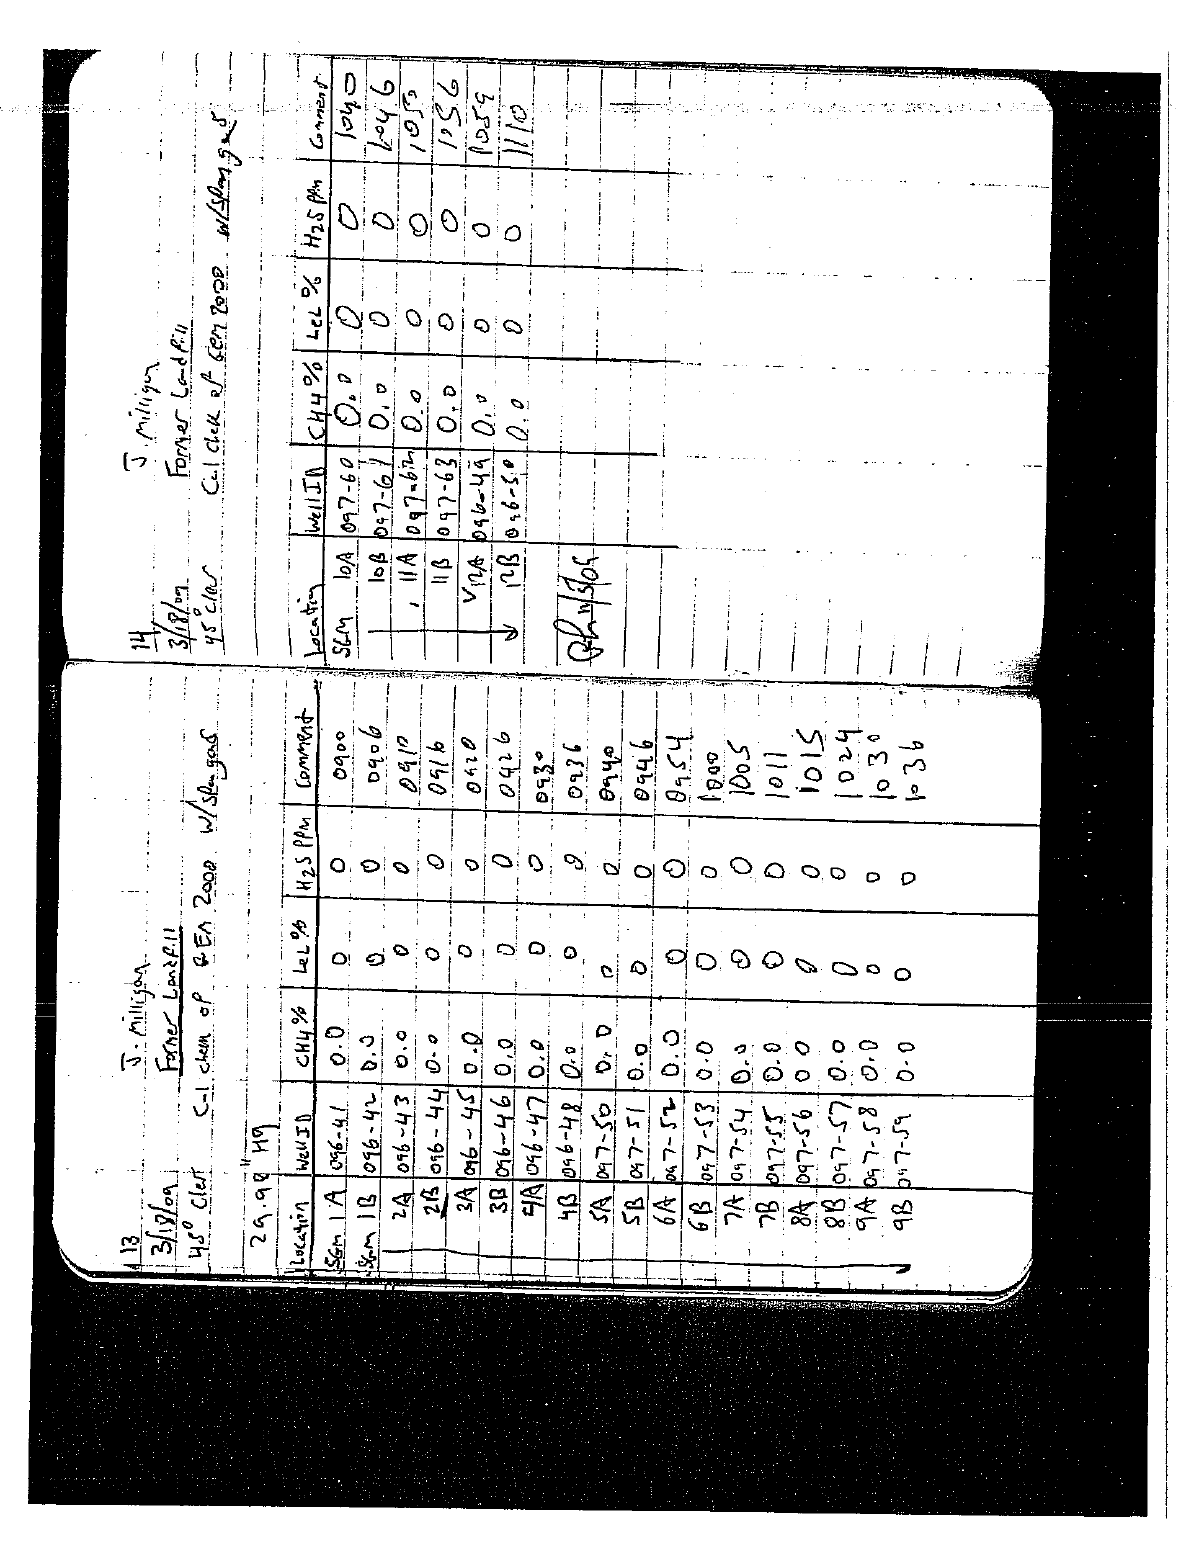 13 J. Milligan
3/18/09 Former Landfill
45° Clear Cal check of GEM 2000 w/span gas
29.98 "Hg
Location Well ID CH4% LeL% H2S PPM Comment
SGM 1A 096-41 0.0 0 0 0900
SGM 1B 096-42 0.0 0 0 0906
2A 096-43 0.0 0 0 0910
2B 096-44 0.0 0 0 0916
3A 096-45 0.0 0 0 0920
3B 096-46 0.0 0 0 0926
4A 096-47 0.0 0 0 0930
4B 096-48 0.0 0 0 0936
5A 097-50 0.0 0 0 0940
5B 097-51 0.0 0 0 0946
6A 097-52 0.0 0 0 0954
6B 097-53 0.0 0 0 1000
7A 097-54 0.0 0 0 1005
7B 097-55 0.0 0 0 1011
8A 097-56 0.0 0 0 1015
8B 097-57 0.0 0 0 1024
9A 097-58 0.0 0 0 1030
9B 097-59 0.0 0 0 1036
14 J. Milligan
3/18/09 Former Landfill
45° Clear Cal check of GEM 2000 w/span gas
Location Well ID CH4% LeL% H2S PPM Comment
SGM 10A 097-60 0.0 0 0 1040
10B 097-61 0.0 0 0 1046
11A 097-62 0.0 0 0 1050
11B 097-63 0.0 0 0 1056
12A 096-49 0.0 0 0 1059
12B 096-50 0.0 0 0 1110